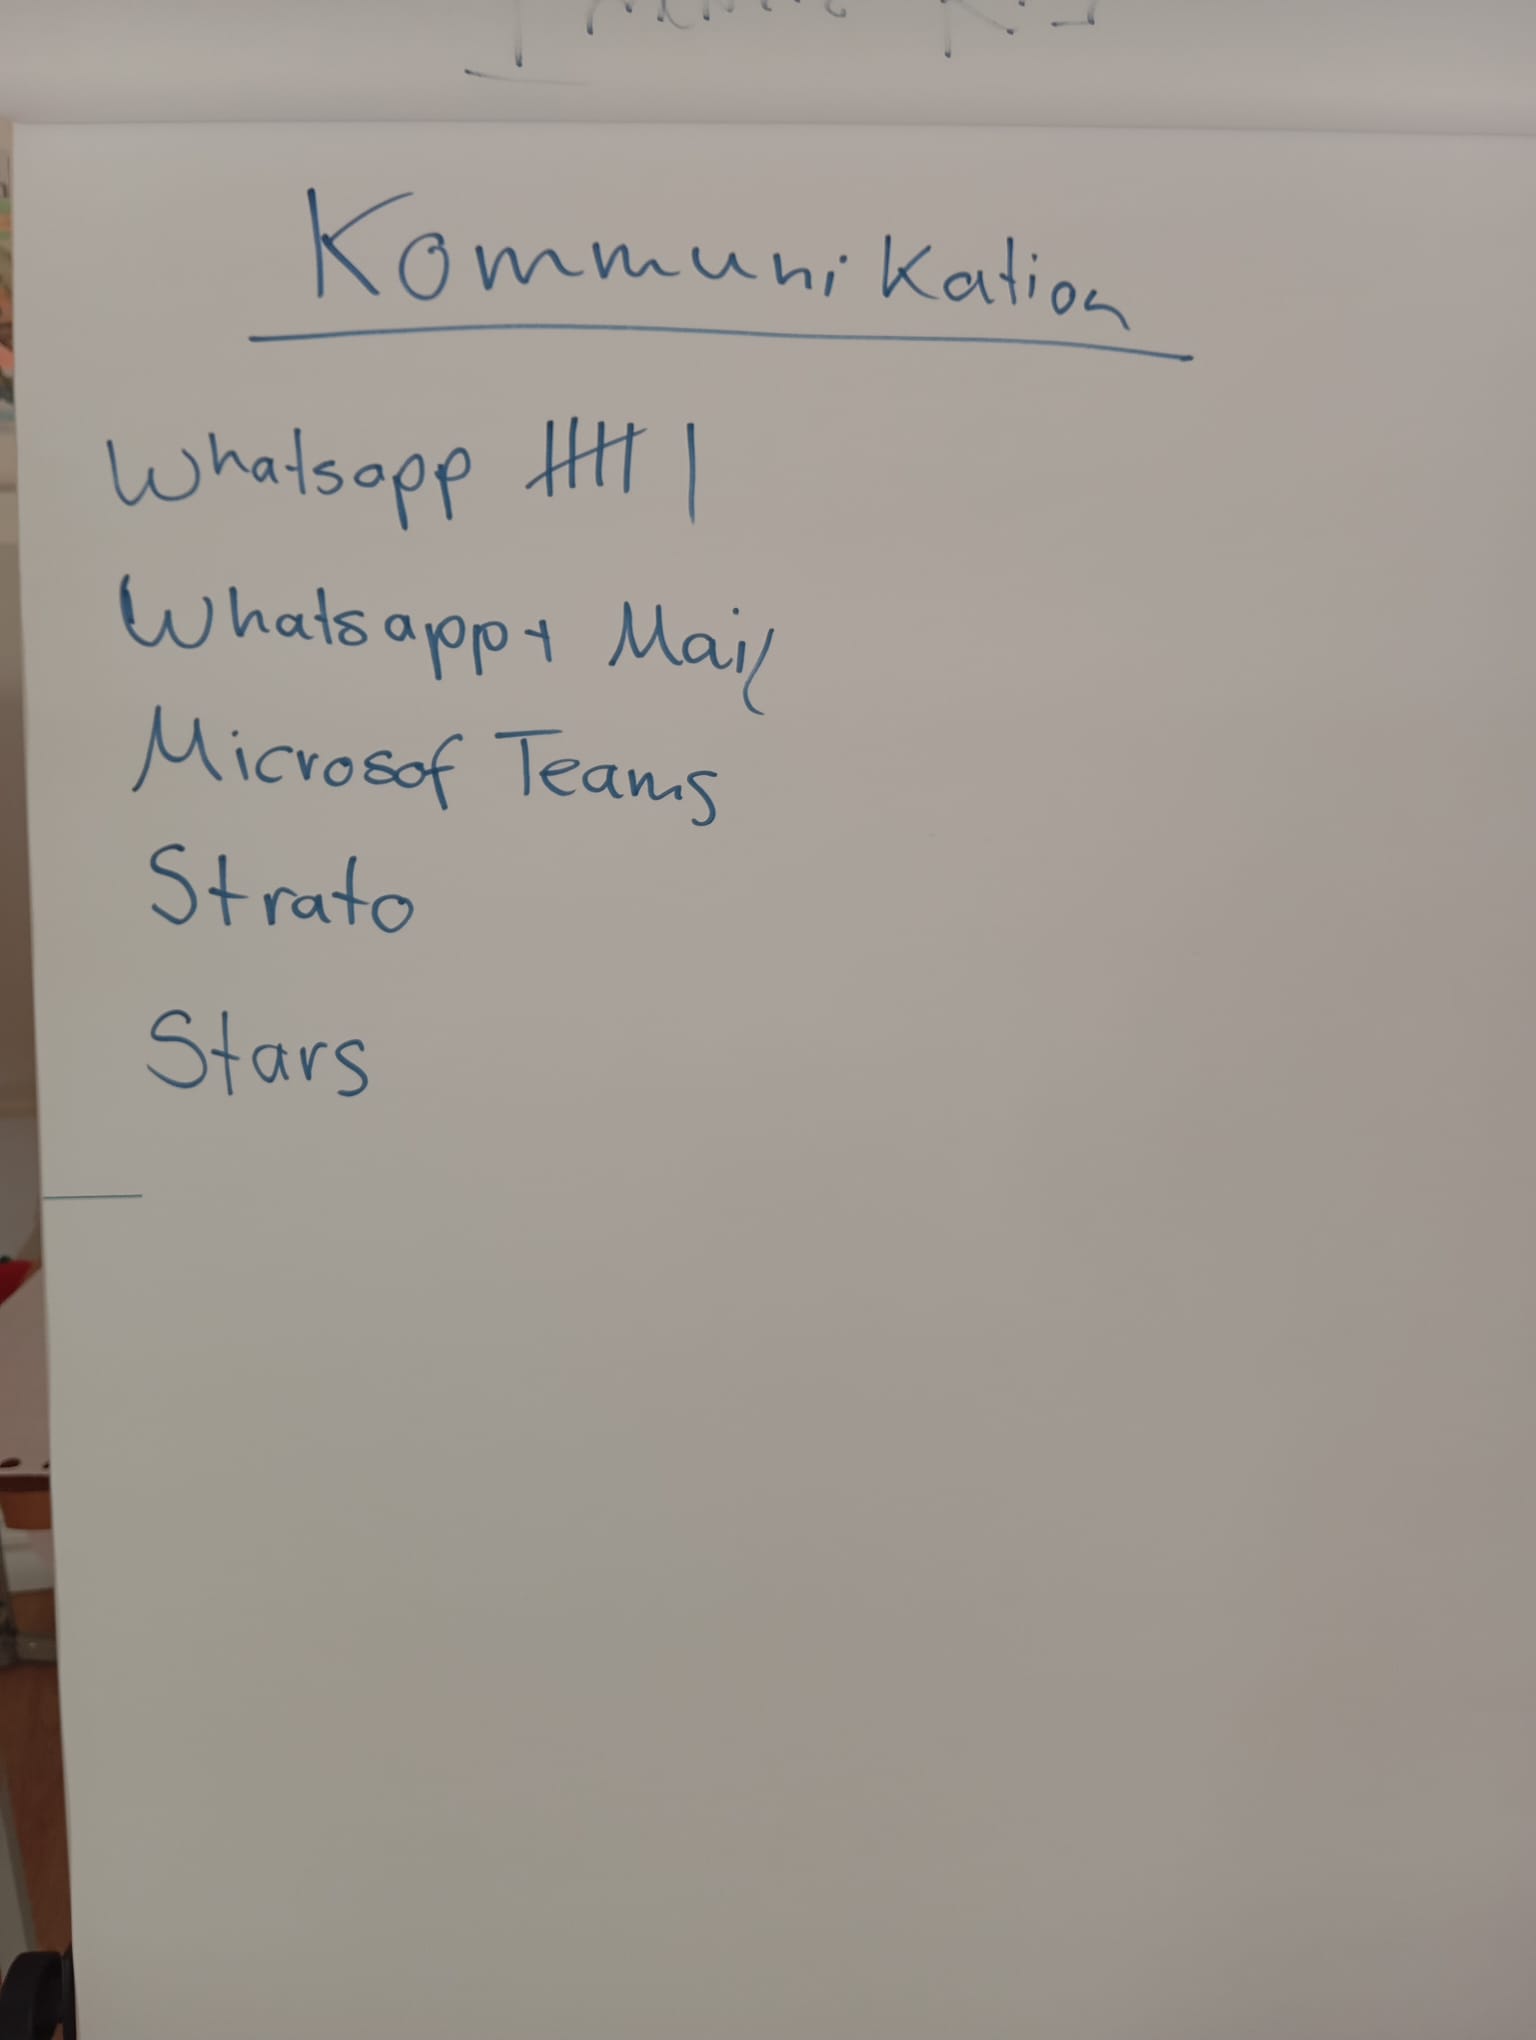 Kommunikation
Whatsapp 卌 |
Whatsapp + Mail
Microsof Teams
Strato
Stars